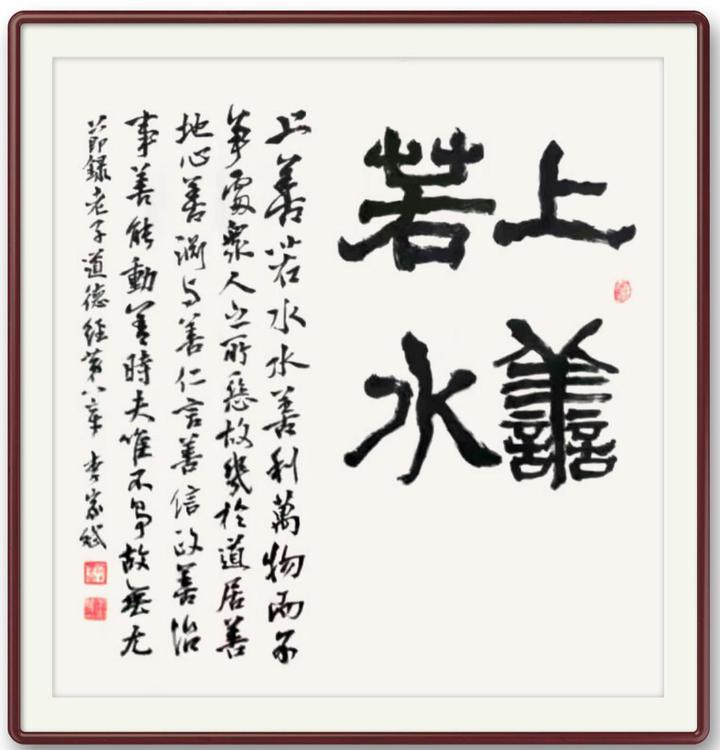 上譱
若水
上善若水水善利萬物而不
爭處衆人之所惡故幾於道居善
地心善淵与善仁言善信政善治
事善能動善時夫唯不爭故無尤
節録老子道德經第八章 李家